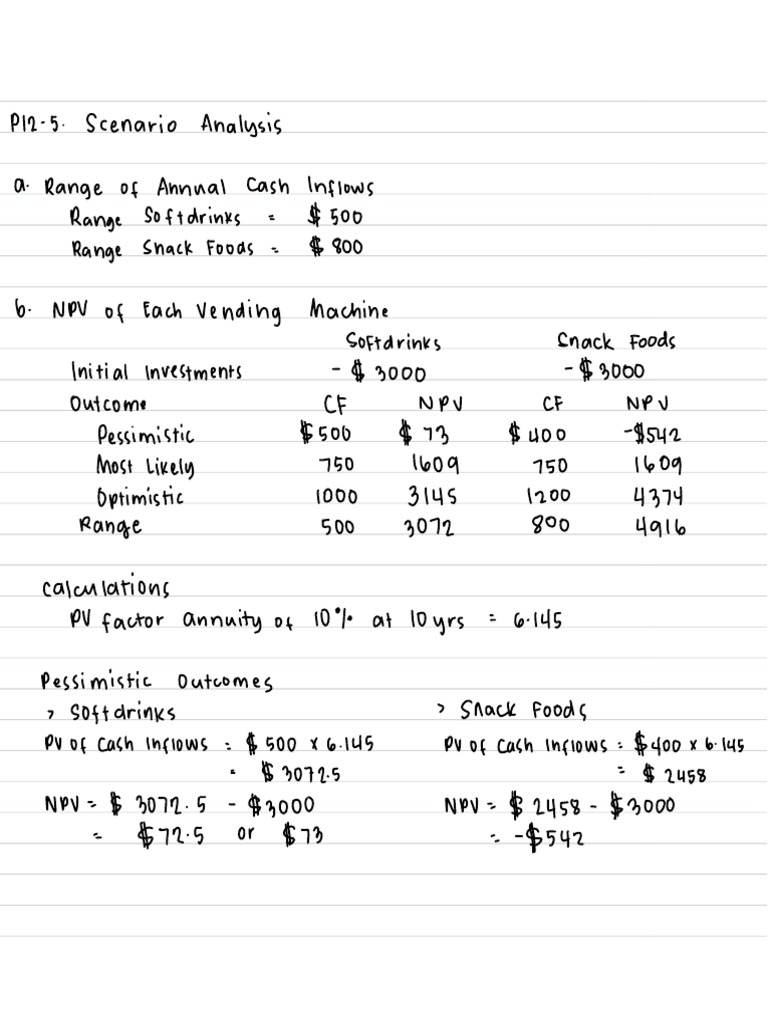 P12-5. Scenario Analysis
a. Range of Annual Cash Inflows
Range Softdrinks = $ 500
Range Snack Foods = $ 800
b. NPV of Each Vending Machine
Softdrinks Snack Foods
Initial Investments - $ 3000 - $ 3000
Outcome CF NPV CF NPV
Pessimistic $ 500 $ 73 $ 400 -$542
Most Likely 750 1609 750 1609
Optimistic 1000 3145 1200 4374
Range 500 3072 800 4916
Calculations
PV factor annuity of 10% at 10 yrs = 6.145
Pessimistic Outcomes
> Softdrinks > Snack Foods
PV of Cash Inflows = $ 500 x 6.145 PV of Cash Inflows = $400 x 6.145
= $ 3072.5 = $ 2458
NPV = $ 3072.5 - $3000 NPV = $ 2458 - $3000
= $72.5 or $73 = -$542